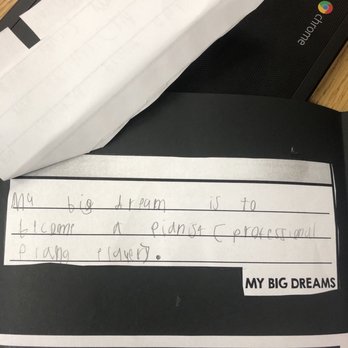 chrome
My big dream is to
become a pianist (professional
piano player).
MY BIG DREAMS